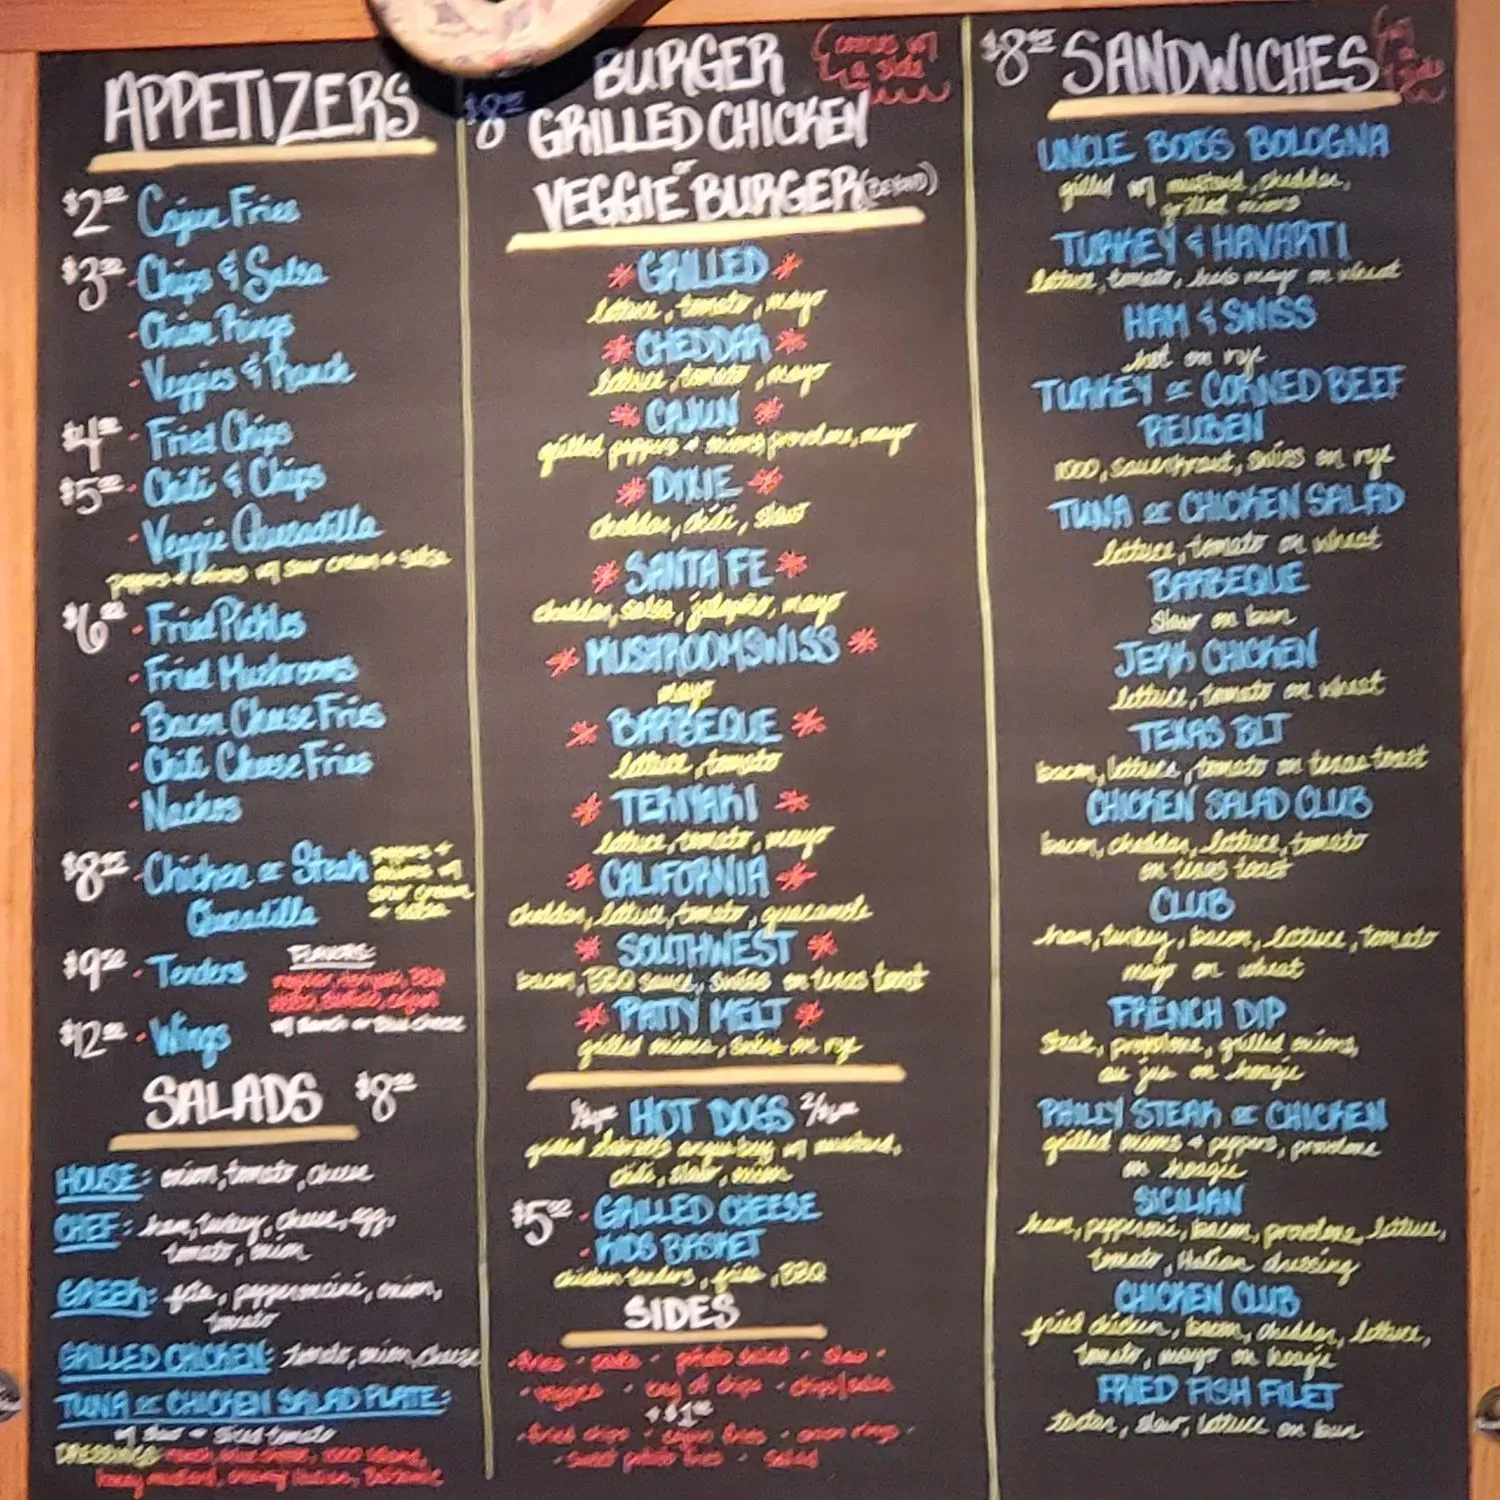 APPETIZERS
$2.00 Cajun Fries
$3.00 · Chips & Salsa
· Onion Rings
· Veggies & Ranch
$4.00 · Fried Chips
$5.00 · Chili & Chips
· Veggie Quesadilla
peppers + onions w/ sour cream + salsa
$6.00 · Fried Pickles
· Fried Mushrooms
· Bacon Cheese Fries
· Chili Cheese Fries
· Nachos
· Chicken or Steak
Quesadilla
peppers +
onions w/
sour cream
+ salsa
$9.00 · Tenders
$12.00 · Wings
FLAVORS:
w/ Ranch or Blue Cheese
SALADS
HOUSE: onion, tomato, cheese
CHEF: ham, turkey, cheese, egg,
tomato, onion
GREEK: feta, pepperoncini, onion,
tomato
GRILLED CHICKEN: tomato, onion, cheese
TUNA or CHICKEN SALAD PLATE:
w/ slaw + sliced tomato
DRESSINGS:
BURGER
GRILLED CHICKEN
or
VEGGIE BURGER (BEYOND)
comes w/
a side
* GRILLED *
lettuce, tomato, mayo
* CHEDDAR *
lettuce, tomato, mayo
* CAJUN *
grilled peppers + onions, provolone, mayo
* DIXIE *
cheddar, chili, slaw
* SANTA FE *
cheddar, salsa, jalapeño, mayo
* MUSHROOM SWISS *
mayo
* BARBEQUE *
lettuce, tomato
* TERIYAKI *
lettuce, tomato, mayo
* CALIFORNIA *
cheddar, lettuce, tomato, guacamole
* SOUTHWEST *
bacon, BBQ sauce, swiss on texas toast
* PATTY MELT *
grilled onions, swiss on rye
HOT DOGS
mustard,
chili, slaw, onion
$5.00 · GRILLED CHEESE
· KIDS BASKET
chicken tenders, fries, BBQ
SIDES
· fries · · potato salad · slaw ·
· veggies · bag of chips · chips/salsa
+ $1.00
· fried chips · cajun fries · onion rings ·
· sweet potato fries · salad
SANDWICHES
UNCLE BOB'S BOLOGNA
grilled w/ mustard, cheddar,
grilled onions
TURKEY & HAVARTI
lettuce, tomato, herb mayo on wheat
HAM & SWISS
hot on rye
TURKEY or CORNED BEEF
REUBEN
1000, sauerkraut, swiss on rye
TUNA or CHICKEN SALAD
lettuce, tomato on wheat
BARBEQUE
slaw on bun
JERK CHICKEN
lettuce, tomato on wheat
TEXAS BLT
bacon, lettuce, tomato on texas toast
CHICKEN SALAD CLUB
bacon, cheddar, lettuce, tomato
on texas toast
CLUB
ham, turkey, bacon, lettuce, tomato
mayo on wheat
FRENCH DIP
steak, provolone, grilled onions,
au jus on hoagie
PHILLY STEAK or CHICKEN
grilled onions + peppers, provolone
on hoagie
SICILIAN
ham, pepperoni, bacon, provolone, lettuce,
tomato, Italian dressing
CHICKEN CLUB
fried chicken, bacon, cheddar, lettuce,
tomato, mayo on hoagie
FRIED FISH FILET
tartar, slaw, lettuce on bun